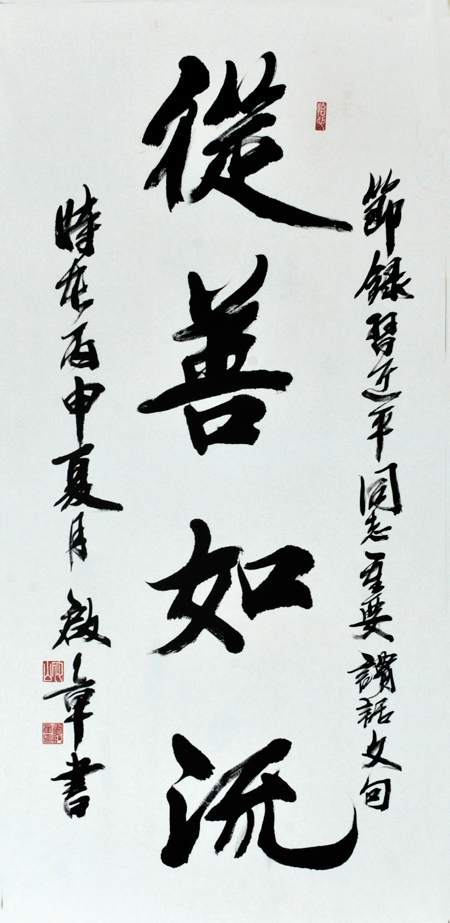 節録習近平同志重要講話文句
從善如流
時在丙申夏月啟章書